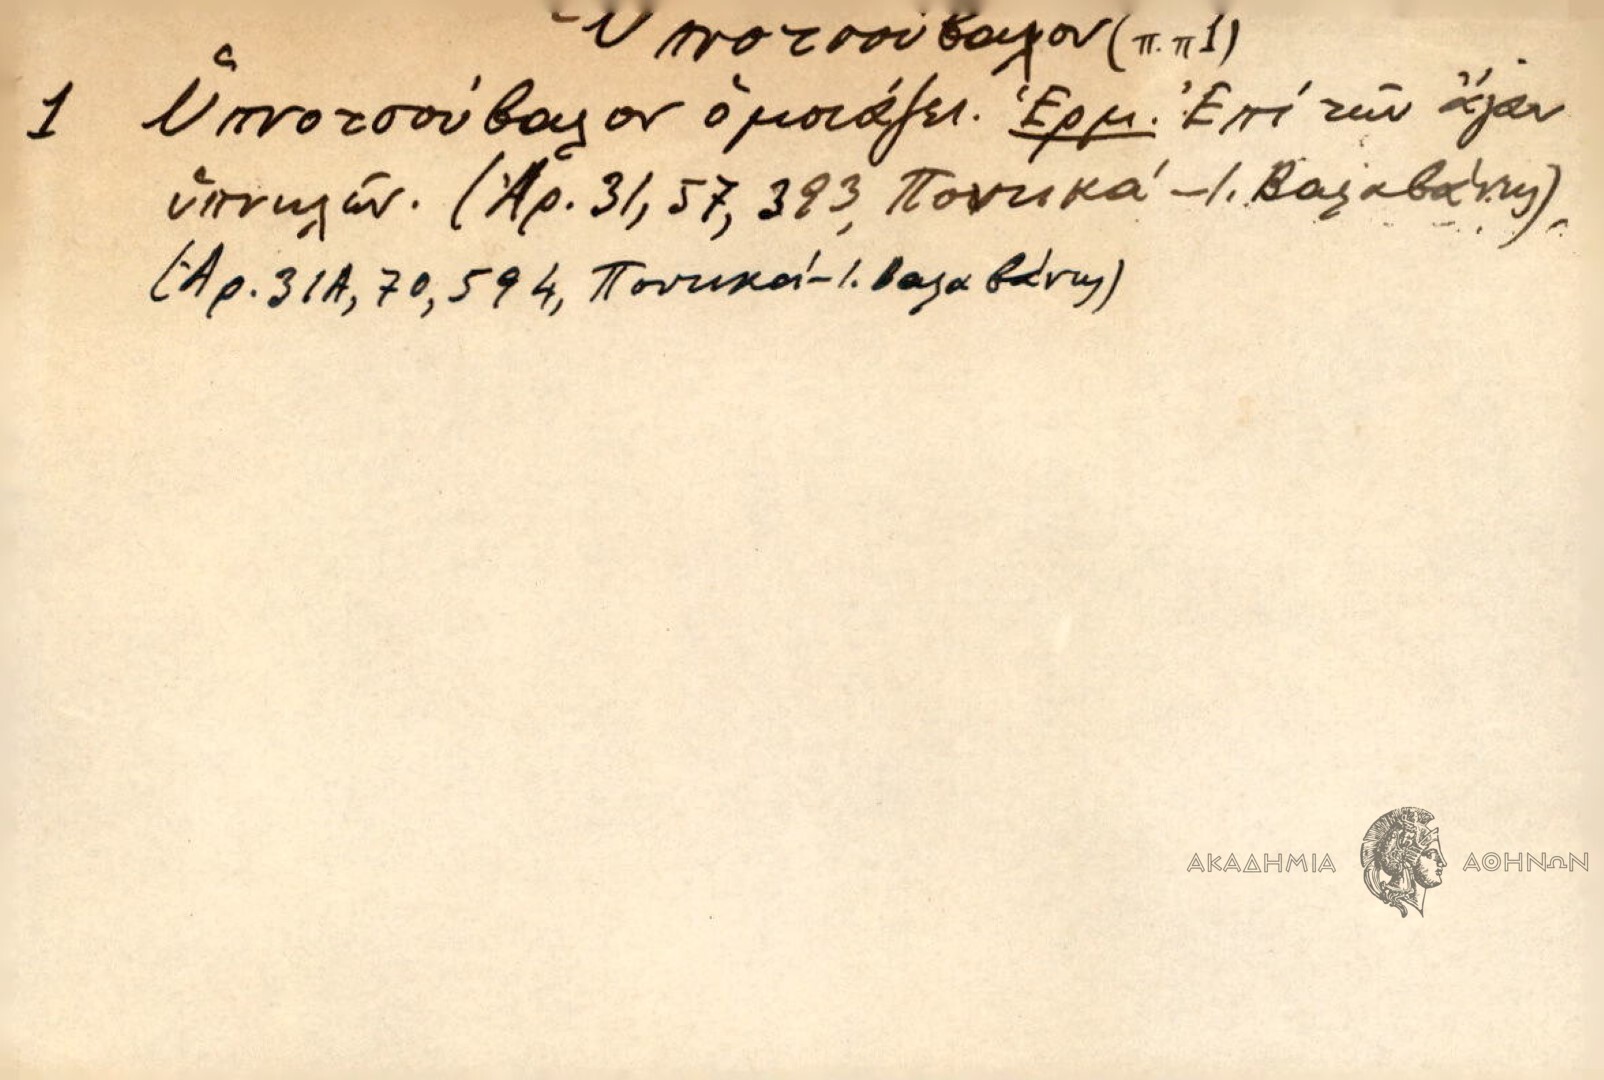 Ὑπνοτσούβαλον (π.π1)
1 Ὑπνοτσούβαλον ὁμοιάζει. Ἑρμ. Ἐπί τῶν ἄγαν
ὑπνηλῶν. (Ἀρ. 31, 57, 393, Ποντικά - Ι. Βαλαβάνης)
(Ἀρ. 31Α, 70, 594, Ποντικά - Ι. Βαλαβάνης)
ΑΚΑΔΗΜΙΑ ΑΘΗΝΩΝ